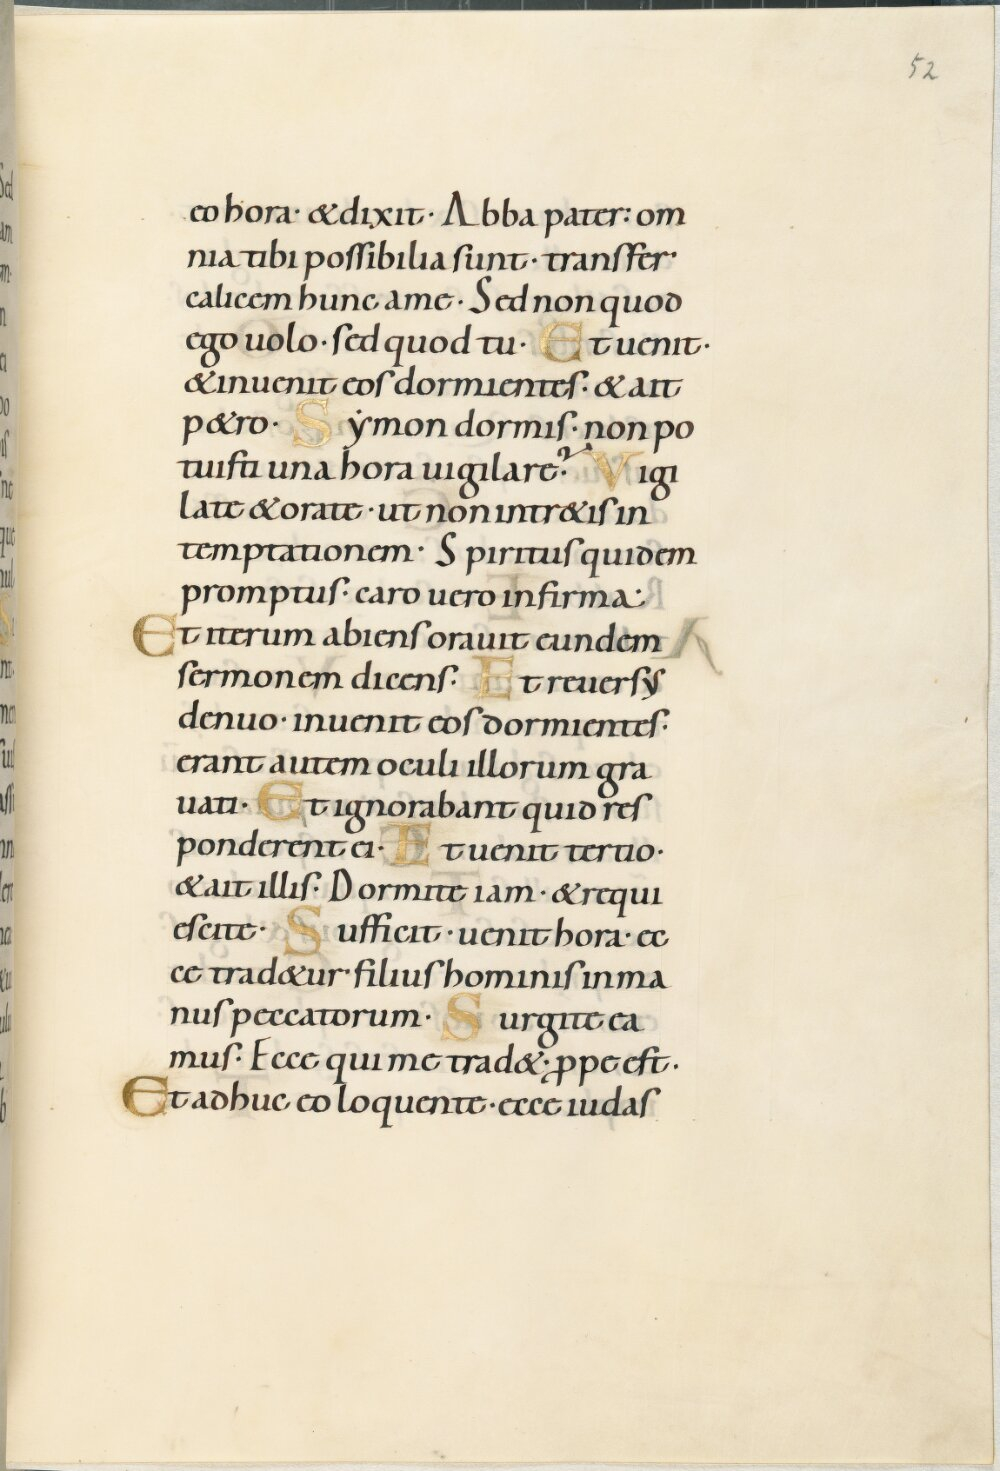 52
eo hora· & dixit· Abba pater: om
nia tibi possibilia sunt· transfer·
calicem hunc a me· Sed non quod
ego uolo· sed quod tu· Et uenit·
& inuenit eos dormientes· & ait
p&ro· Sẏmon dormis· non po
tuisti una hora uigilare? Vigi
late & orate· ut non intr&is in
temptationem· Spiritus quidem
promptus· caro uero infirma:
Et iterum abiens orauit eundem
sermonem dicens· Et reuersus
denuo· inuenit eos dormientes·
erant autem oculi illorum gra
uati· Et ignorabant quid res
ponderent ei· Et uenit tertio·
& ait illis· Dormite iam· & requi
escite· Sufficit· uenit hora· ec
ce trad&ur· filius hominis in ma
nus peccatorum· Surgite ea
mus· Ecce qui me trad&· ꝓpe est·
Et adhuc eo loquente· ecce iudas